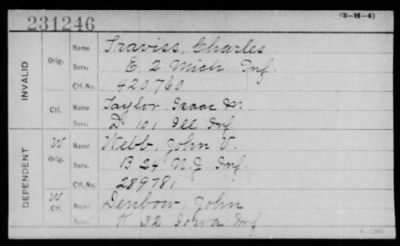 231246 (3-H-4)
INVALID
Orig. Name Traviss, Charles
Serv. E 2 Mich Inf.
Ctf. No. 420760
Ctf. Name Taylor, Isaac M.
Serv. D 101 Ill Inf
DEPENDENT
W Orig. Name Webb, John V.
Serv. B 24 N.J. Inf.
Ctf. No. 289781
W Ctf. Name Denbow, John
Serv. K 32 Iowa Inf